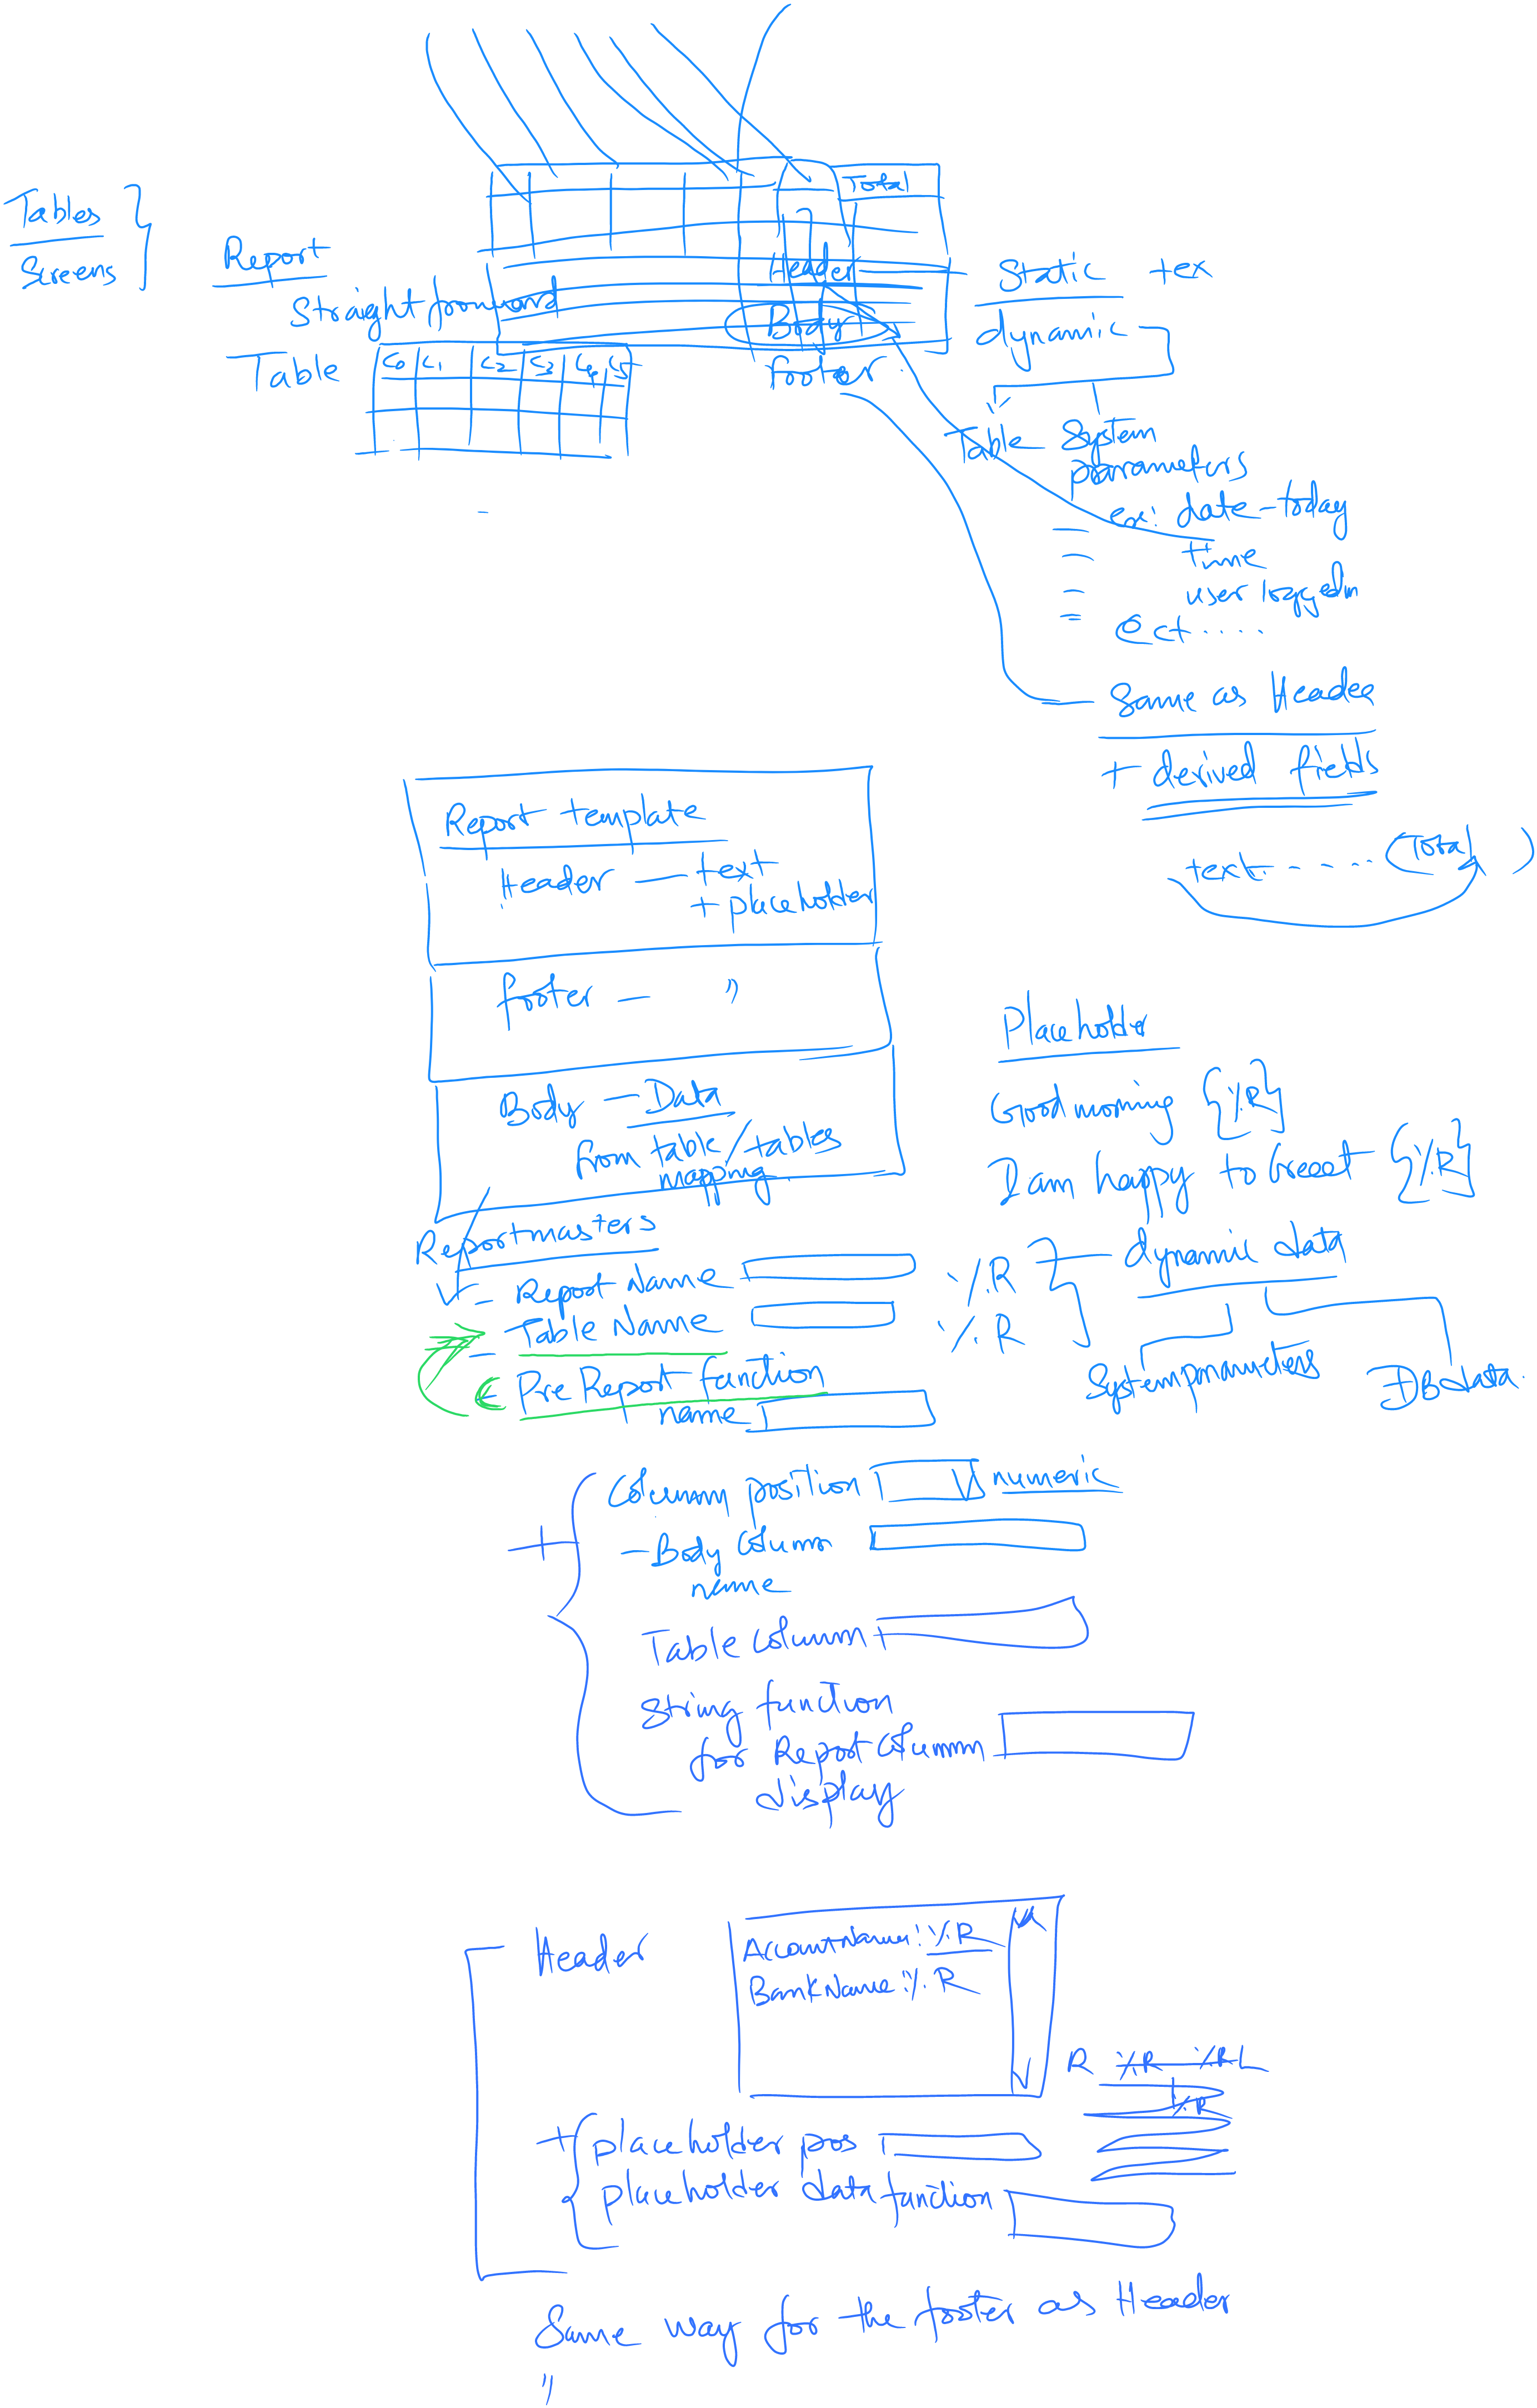 Total
Tables
Screens
Report
Straight forward
Header
Static tex
Body
dynamic
Table
C0 C1 C2 C3 C4 C5
footer
Table
System
parameters
ex: date-today
time
user logged in
Ect.....
Same as Header
+ derived fields
text - - - - - (Total )
Report template
Header — text
+ placeholder
footer — "
Body — Data
from table/tables
mapping
Placeholder
Good morning {%R}
I am happy to Greeet {%R}
Reportmasters
- Report Name
- Table Name
- Pre Report function
name
%R
%R
dynamic data
System parameters
DB data.
+
Column position numeric
- Body Column
name
Table Column
String function
for Report Column
display
Header
AccountName: %R
BankName: %R
R %R %RL
%R
+ placeholder pos
placeholder data function
Same way for the footer as Header
"